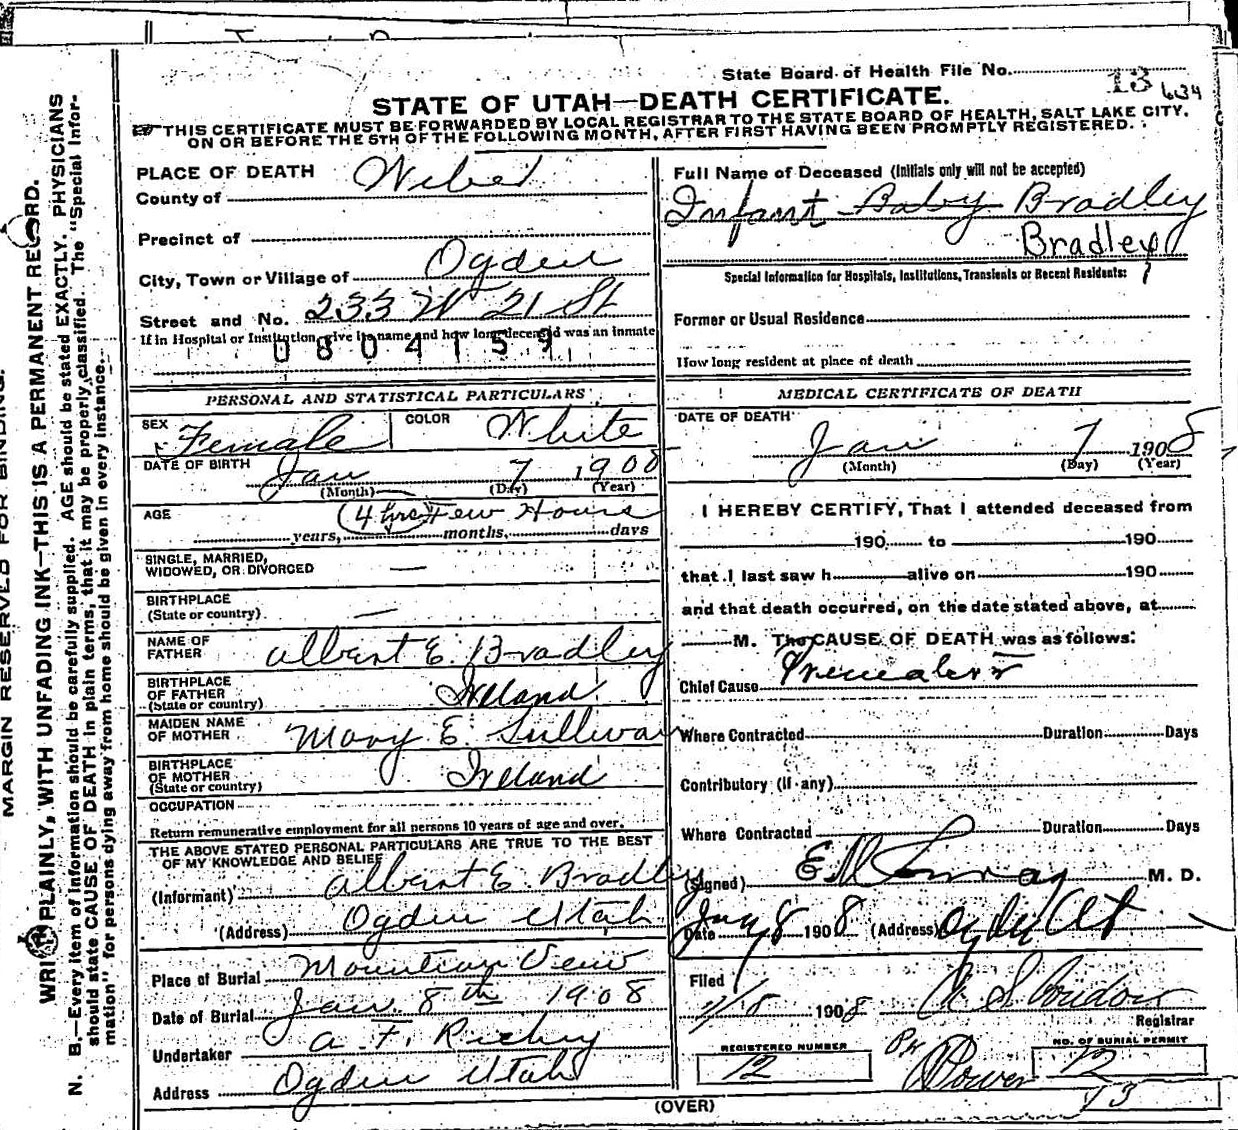 State Board of Health File No. 13 634
STATE OF UTAH—DEATH CERTIFICATE.
THIS CERTIFICATE MUST BE FORWARDED BY LOCAL REGISTRAR TO THE STATE BOARD OF HEALTH, SALT LAKE CITY,
ON OR BEFORE THE 5TH OF THE FOLLOWING MONTH, AFTER FIRST HAVING BEEN PROMPTLY REGISTERED.
MARGIN RESERVED FOR BINDING.
WRITE PLAINLY, WITH UNFADING INK—THIS IS A PERMANENT RECORD.
N. B.—Every item of information should be carefully supplied. AGE should be stated EXACTLY. PHYSICIANS
should state CAUSE OF DEATH in plain terms, that it may be properly classified. The "Special Infor-
mation" for persons dying away from home should be given in every instance.
PLACE OF DEATH
County of Weber
Precinct of
City, Town or Village of Ogden
Street and No. 233 W 21 St
If in Hospital or Institution, give its name and how long deceased was an inmate
0804159
PERSONAL AND STATISTICAL PARTICULARS
SEX Female COLOR White
DATE OF BIRTH Jan 7 1908
(Month) (Day) (Year)
AGE (4 hrs) Few Hours
years, months, days
SINGLE, MARRIED,
WIDOWED, OR DIVORCED —
BIRTHPLACE
(State or country) —
NAME OF
FATHER Albert E. Bradley
BIRTHPLACE
OF FATHER
(State or country) Ireland
MAIDEN NAME
OF MOTHER Mary E. Sullivan
BIRTHPLACE
OF MOTHER
(State or country) Ireland
OCCUPATION
Return remunerative employment for all persons 10 years of age and over.
THE ABOVE STATED PERSONAL PARTICULARS ARE TRUE TO THE BEST
OF MY KNOWLEDGE AND BELIEF
(Informant) Albert E. Bradley
(Address) Ogden Utah
Place of Burial Mountain View
Date of Burial Jan. 8th 1908
Undertaker A. F. Richey
Address Ogden Utah
Full Name of Deceased (Initials only will not be accepted)
Infant Baby Bradley
Bradley
Special Information for Hospitals, Institutions, Transients or Recent Residents:
Former or Usual Residence
How long resident at place of death
MEDICAL CERTIFICATE OF DEATH
DATE OF DEATH
Jan 7 1908
(Month) (Day) (Year)
I HEREBY CERTIFY, That I attended deceased from
190 to 190
that I last saw h alive on 190
and that death occurred, on the date stated above, at
M. The CAUSE OF DEATH was as follows:
Chief Cause
Where Contracted Duration Days
Contributory (if any)
Where Contracted Duration Days
(Signed) E M Conroy M. D.
Date Jan 8 1908 (Address) Ogden Ut
Filed
1/8 1908
Registrar
REGISTERED NUMBER
12
Per
Power
NO. OF BURIAL PERMIT
12
13
(OVER)